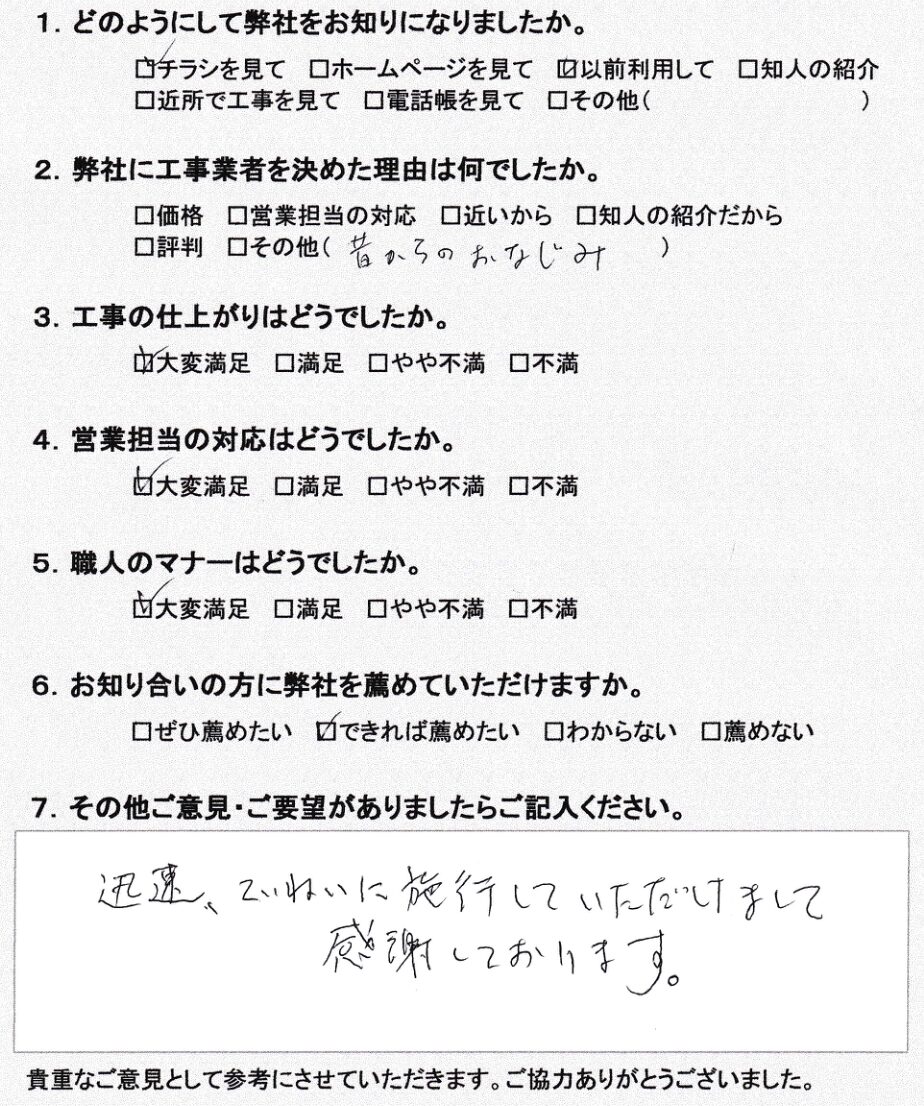 1. どのようにして弊社をお知りになりましたか。
☑チラシを見て □ホームページを見て ☑以前利用して □知人の紹介
□近所で工事を見て □電話帳を見て □その他( )
2. 弊社に工事業者を決めた理由は何でしたか。
□価格 □営業担当の対応 □近いから □知人の紹介だから
□評判 □その他( 昔からのおなじみ )
3. 工事の仕上がりはどうでしたか。
☑大変満足 □満足 □やや不満 □不満
4. 営業担当の対応はどうでしたか。
☑大変満足 □満足 □やや不満 □不満
5. 職人のマナーはどうでしたか。
☑大変満足 □満足 □やや不満 □不満
6. お知り合いの方に弊社を薦めていただけますか。
□ぜひ薦めたい ☑できれば薦めたい □わからない □薦めない
7. その他ご意見・ご要望がありましたらご記入ください。
迅速、ていねいに施行していただけまして
感謝しております。
貴重なご意見として参考にさせていただきます。ご協力ありがとうございました。